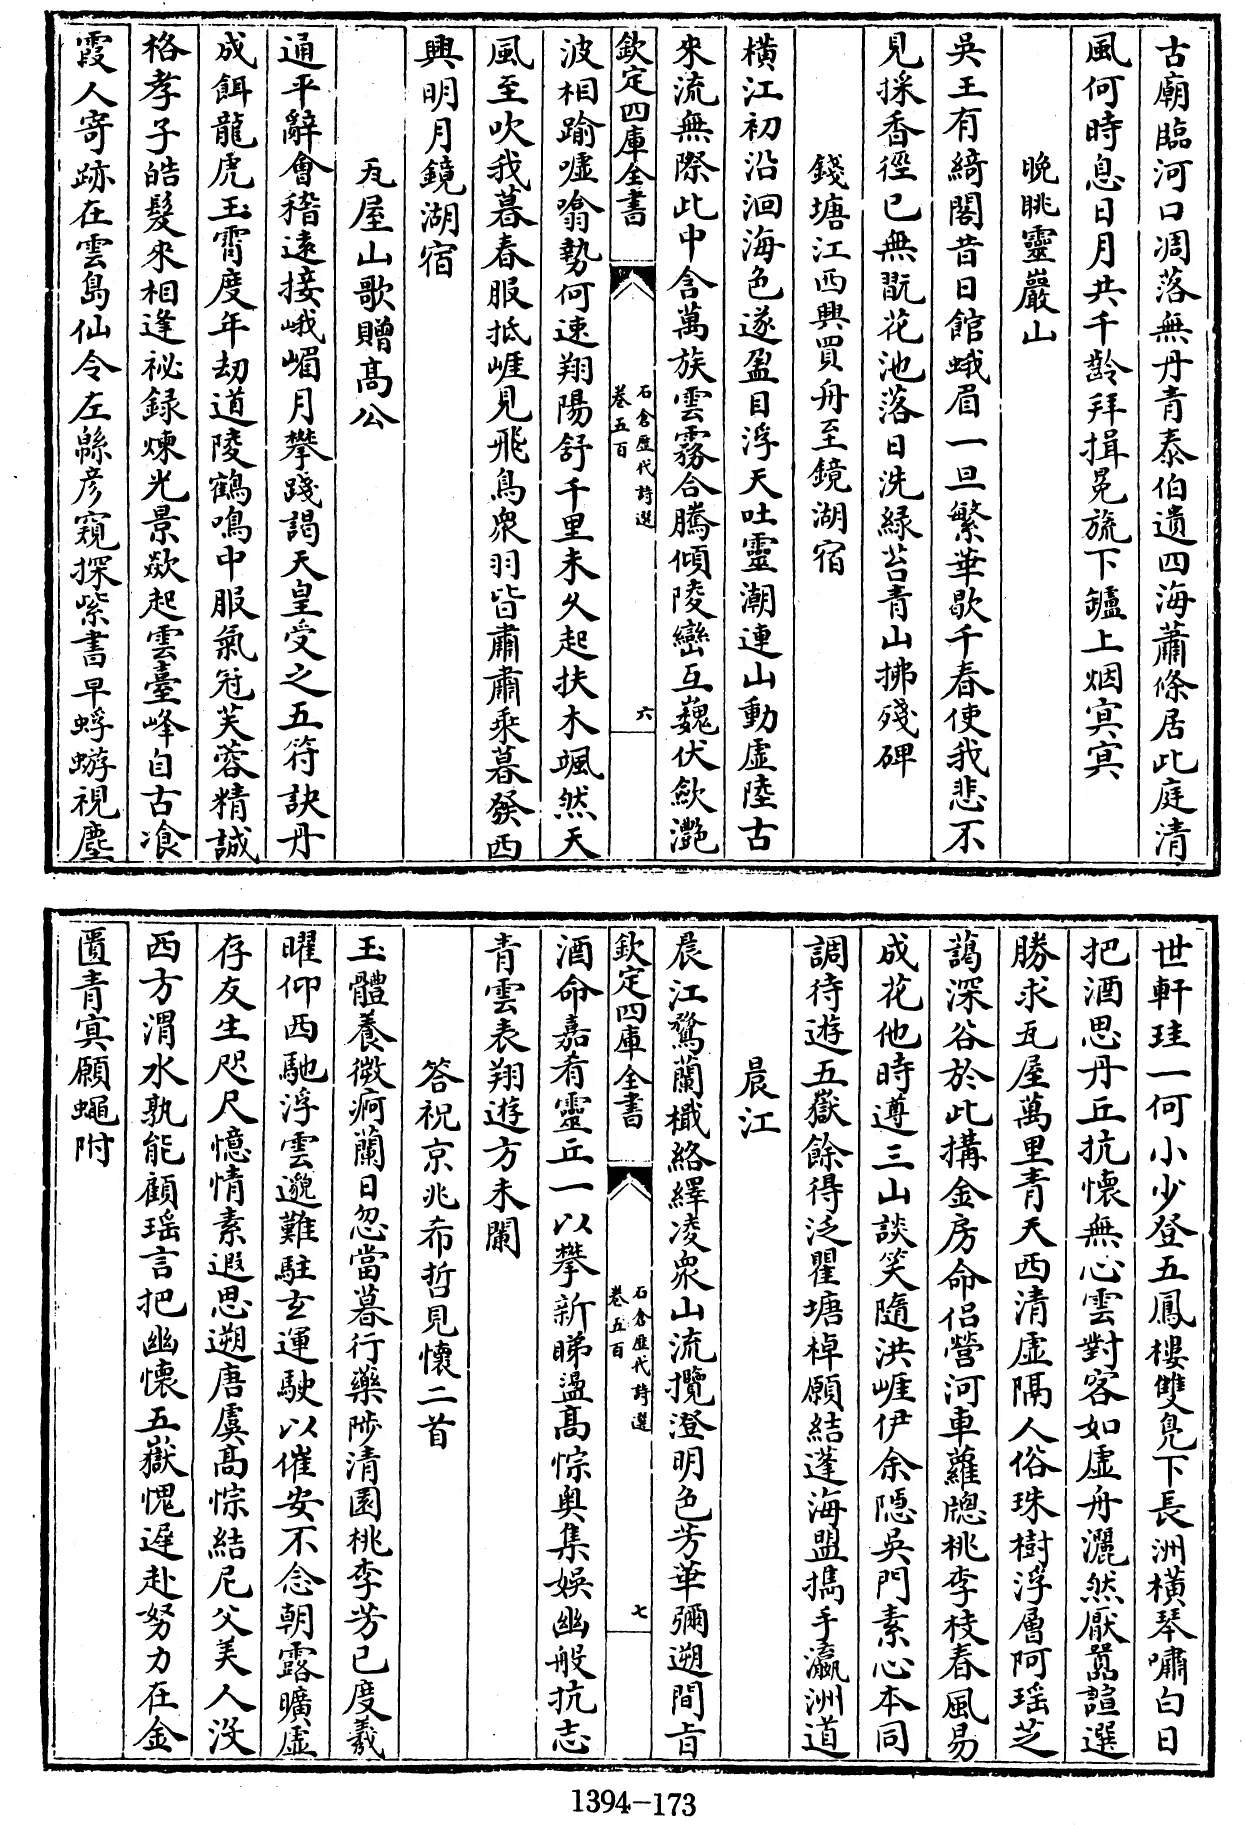 古廟臨河口凋落無丹青泰伯遺四海蕭條居此庭清
風何時息日月共千齡拜揖冕旒下鑪上烟㝠㝠
晩眺靈巖山
吳王有綺閣昔日館蛾眉一旦繁華歇千春使我悲不
見採香徑已無翫花池落日洗緑苔青山拂殘碑
錢塘江西興買舟至鏡湖宿
橫江初沿洄海色遂盈目浮天吐靈潮連山動虛陸古
來流無際此中含萬族雲霧合騰傾陵巒互巍伏歘灔
欽定四庫全書
石倉歴代詩選
卷五百
六
波相踰噓噏勢何速翔陽舒千里未久起扶木颯然天
風至吹我暮春服抵崕見飛鳥衆羽皆肅肅乘暮發西
興明月鏡湖宿
瓦屋山歌贈髙公
通平辭會稽遠接峨嵋月攀踐謁天皇受之五符訣丹
成餌龍虎玉霄度年刼道陵鶴鳴中服氣冠芙蓉精誠
格孝子皓髮來相逢祕録煉光景歘起雲臺峰自古飡
霞人寄跡在雲島仙令左緜彦窺探紫書早蜉蝣視塵
世軒珪一何小少登五鳳樓雙鳬下長洲橫琴嘯白日
把酒思丹丘抗懷無心雲對客如虛舟灑然厭囂諠選
勝求瓦屋萬里青天西清虛隔人俗珠樹浮層阿瑶芝
藹深谷於此搆金房命侣營河車蘿牎桃李枝春風易
成花他時遵三山談笑隨洪崕伊余隠吳門素心本同
調待遊五嶽餘得泛瞿塘棹願結蓬海盟攜手瀛洲道
晨江
晨江驚蘭檝絡繹凌衆山流攬澄明色芳華彌遡間旨
欽定四庫全書
石倉歴代詩選
卷五百
七
酒命嘉肴靈丘一以攀新睇盪髙悰奥集娛幽般抗志
青雲表翔遊方未闌
答祝京兆希哲見懷二首
玉體養微痾蘭日忽當暮行藥陟清園桃李芳已度羲
曜仰西馳浮雲邈難駐玄運駛以催安不念朝露曠虛
存友生咫尺憶情素遐思遡唐虞髙悰結尼父美人没
西方渭水孰能顧瑶言把幽懷五嶽愧遲赴努力在金
匱青㝠願蠅附
1394-173